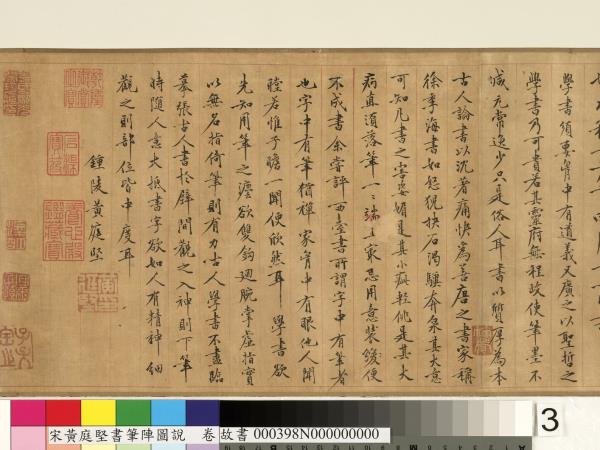 學書須要胷中有道義又廣之以聖哲之
學書乃可貴若其靈府無程政使筆墨不
減元常逸少只是俗人耳書以質厚為本
古人論書以沈著痛快為善唐之書家稱
徐季海書如怒猊抉石渴驥奔泉其大意
可知凡書之害姿媚是其小疵輕佻是其大
病直須落筆一一端正最忌用意裝綴便
不成書余嘗評西臺書所謂字中有筆者
也字中有筆如禪家句中有眼他人聞
瞠若惟子瞻一聞便欣然耳 學書欲
先知用筆之法欲雙鉤迴腕掌虛指實
以無名指倚筆則有力古人學書不盡臨
摹張古人書於壁間觀之入神則下筆
時隨人意大抵書字欲如人有精神細
觀之則部位皆中度耳
鍾陵黃庭堅
宋黃庭堅書筆陣圖說 卷 故書 000398N000000000
3